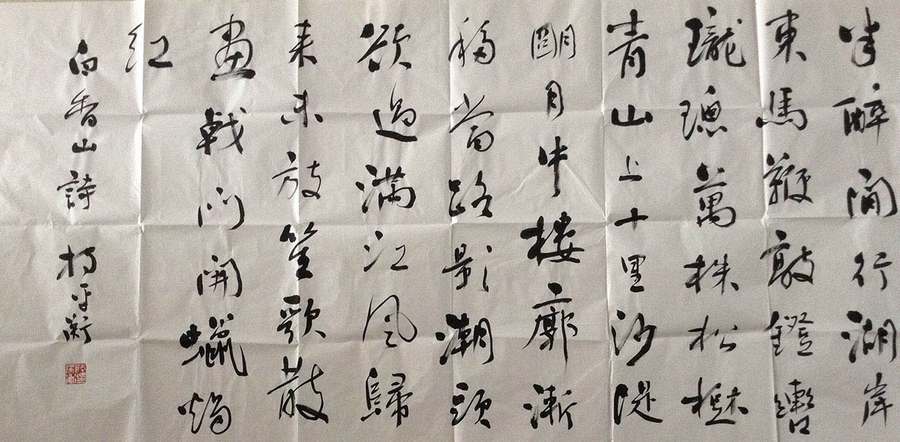 半醉閒行湖岸
東馬鞭敲鐙轡
瓏璁萬株松樹
青山上十里沙堤
朙月中樓廓漸
移當路影潮頭
欲過滿江風歸
来未放笙歌散
畫戟门開蠟燭
紅
白香山詩